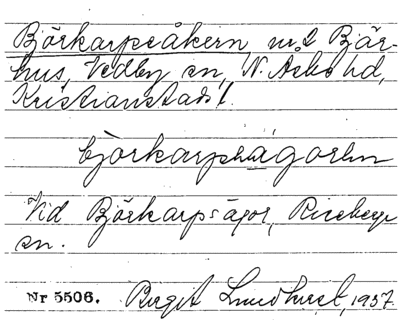 Björkarpsåkern, nr 2 Bjär-
hus, Vedby sn, N. Åsbo hd,
Kristianstads l.
björkarps
Vid Björkarps ägor, Riseberga
sn.
Nr 5506. Birgit Lundhurst, 1937